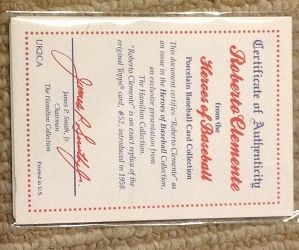 Certificate of Authenticity
Roberto Clemente
from the
Heroes of Baseball
Porcelain Baseball Card Collection
This document certifies "Roberto Clemente" as
an issue in the Heroes of Baseball Collection,
an exclusive presentation from
The Hamilton Collection.
"Roberto Clemente" is an exact replica of the
original Topps® card, #52, introduced in 1958.
James P. Smith, Jr.
James P. Smith, Jr.
Chairman
The Hamilton Collection
UK2CA
Printed in U.S.